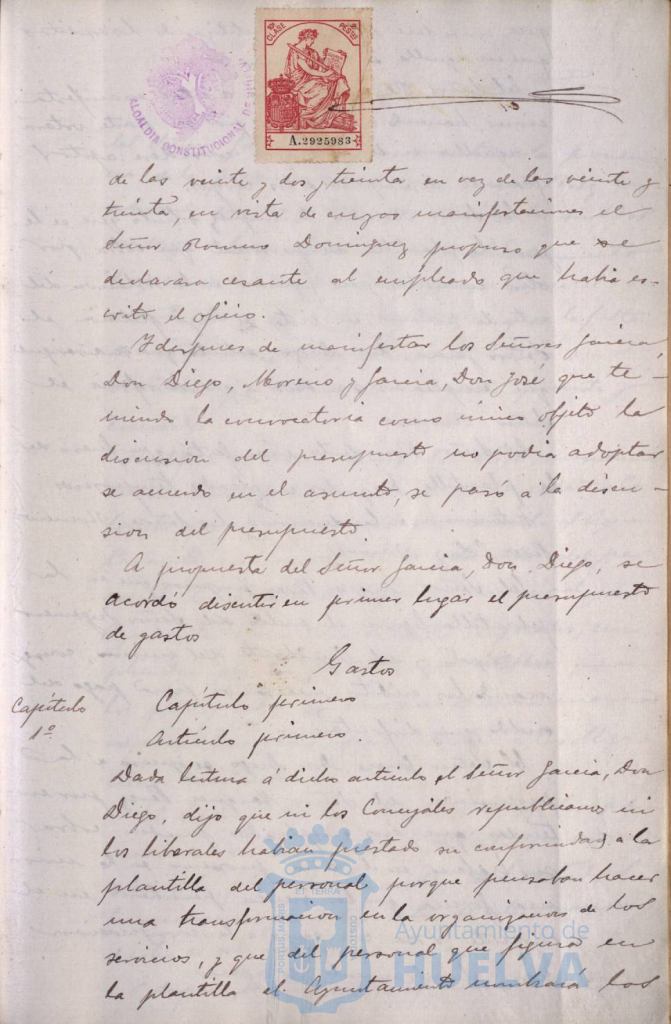 10ª CLASE PESETAS
ALCALDIA CONSTITUCIONAL DE HUELVA
A.2925983
de las veinte y dos y treinta en vez de las veinte y
treinta, en vista de cuyas manifestaciones el
Señor Romero Dominguez propuso que se
declarara cesante al empleado que habia es-
crito el oficio.
Y despues de manifestar los Señores Garcia,
Don Diego, Moreno y Garcia, Don José que te-
niendo la convocatoria como único objeto la
discusion del presupuesto no podia adoptar
se acuerdo en el asunto, se pasó á la discu-
sion del presupuesto.
A propuesta del Señor Garcia, Don Diego, se
acordó discutir en primer lugar el presupuesto
de gastos
Gastos
Capítulo 1º.
Capítulo primero
Artículo primero.
Dada lectura á dicho artículo, el Señor Garcia, Don
Diego, dijo que ni los Concejales republicanos ni
los liberales habian prestado su conformidad á la
plantilla del personal porque pensaban hacer
una transformacion en la organizacion de los
servicios, y que del personal que figura en
la plantilla el Ayuntamiento nombrará los
PORTUS MARIS ET TERRAE CUSTODIA
Ayuntamiento de
HUELVA